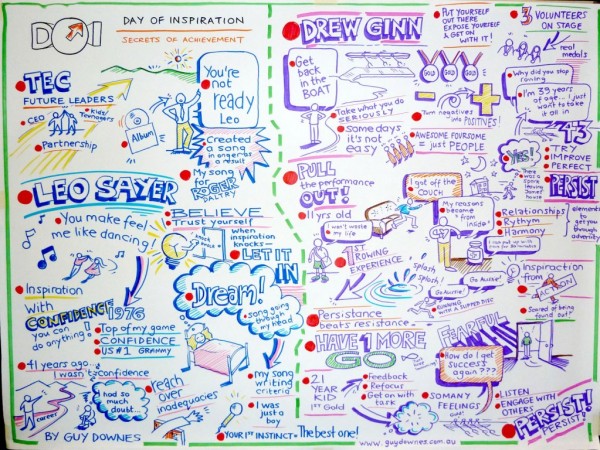 DOI
DAY OF INSPIRATION
SECRETS OF ACHIEVEMENT
TEC
FUTURE LEADERS
CEO
Kids/
Teenagers
Partnership
Album
You're
not
ready
Leo
Created
a song
in anger as
a result
My song
for
ROGER
DALTRY
LEO SAYER
You make feel
me like dancing!
BELIEVE
Trust yourself
When
inspiration
knocks—
LET IT
IN
Dream!
song going
through
my head
Inspiration
With
CONFIDENCE
you can
do anything!
1976
Top of my game
CONFIDENCE
US #1 GRAMMY
41 years ago
I wasn't confidence
career
had so
much
doubt...
reach over
inadequacies
my song
writing
criteria
I was
just a
boy
YOUR 1ST INSTINCT - The best one!
BY GUY DOWNES
DREW GINN
Get
back
in the
BOAT
PUT YOURSELF
OUT THERE
EXPOSE YOURSELF
& GET ON
WITH IT!
GOLD
GOLD
GOLD
3 VOLUNTEERS
ON STAGE
real
medals
Why did you stop
rowing
I'm 39 years
of age... I just
want to take
it all in
Take what you do
SERIOUSLY
Some days
it's not
easy
Turn negatives
into POSITIVES!
AWESOME FOURSOME
= just PEOPLE
4-3
TRY
IMPROVE
PERFECT
YES!
There
was a
leaving
house
PERSIST
PULL
the performance
OUT!
11 yrs old
I won't waste
my life
I got off the
COUCH
My reasons
became
from inside!
Relationships
Rythym
Harmony
elements
to get
you
through
adversity
1ST
ROWING
EXPERIENCE
Splash
splash!
Go Aussie!
Go Aussie
Go Aussie
ROWING
WITH A SLIPPED DISC
Inspiraction
from
ACTION
Scared of being
found out?
Persistance
beats resistance.
HAVE 1 MORE
GO
FEARFUL
How do I get
success
again???
21
YEAR
KID
1ST Gold
Feedback
Refocus
Get on with
task
SO MANY
FEELINGS
LISTEN
ENGAGE WITH
OTHERS
PERSIST!
PERSIST!
www.guydownes.com.au